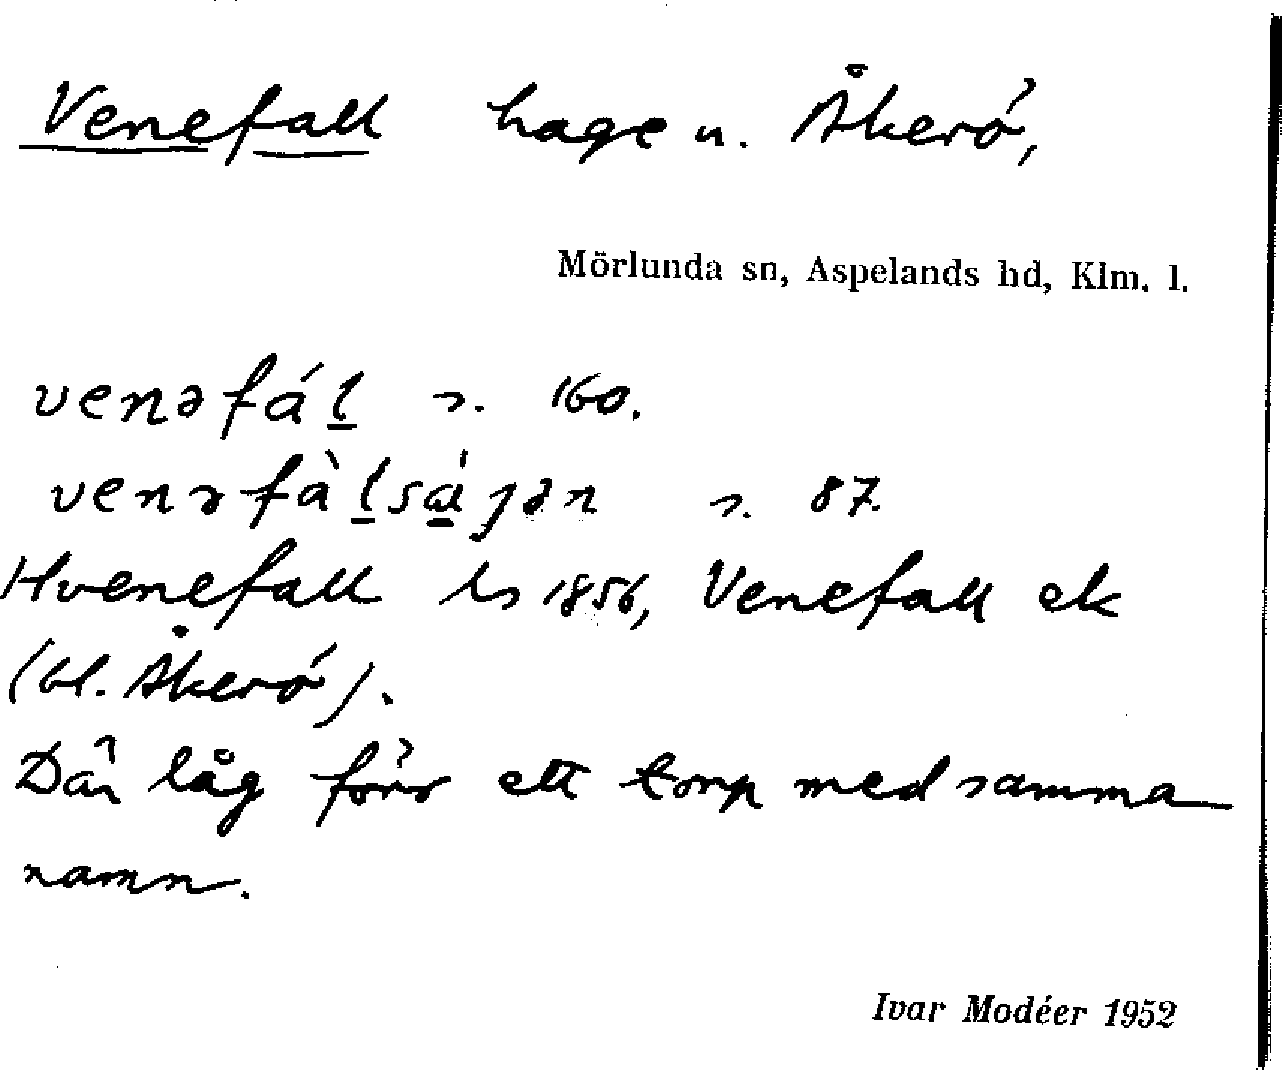 Venefall hage u. Åkerö,
Mörlunda sn, Aspelands hd, Klm. l.
venəfál s. 160.
venəfàlsájən s. 87.
Hvenefall ls 1856, Venefall ek
(bl. Åkerö).
Där låg förr ett torp med samma
namn.
Ivar Modéer 1952